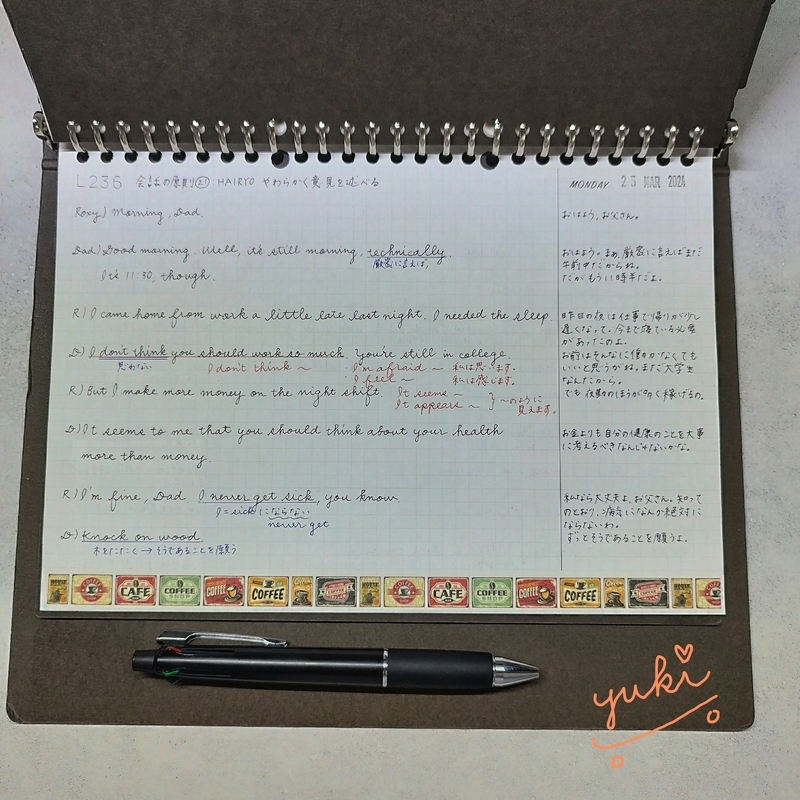 L236 会話の原則㉑:HAIRYO やわらかく意見を述べる
MONDAY 25 MAR 2024
Roxy) Morning, Dad.
おはよう、お父さん。
Dad) Good morning. Well, it's still morning, technically.
厳密に言えば,
It's 11:30, though.
おはよう。まあ、厳密に言えばまだ
午前中だからね。
だがもう11時半だよ。
R) I came home from work a little late last night. I needed the sleep.
昨日の夜は仕事で帰りが少し
遅くなって。今まで寝ている必要
があったのよ。
D) I don't think you should work so much. You're still in college.
思わない
I don't think ~
I'm afraid ~ 私は思います。
I feel ~ 私は感じます。
お前はそんなに働かなくても
いいと思うがね。まだ大学生
なんだから。
R) But I make more money on the night shift.
It seems ~
It appears ~
} ~のように
見えます。
でも夜勤のほうが多く稼げるの。
D) It seems to me that you should think about your health
more than money.
お金よりも自分の健康のことを大事
に考えるべきなんじゃないかな。
R) I'm fine, Dad. I never get sick, you know.
I = sick にならない
never get
私なら大丈夫よ、お父さん。知って
のとおり、病気になんか絶対に
ならないわ。
D) Knock on wood.
木をたたく → そうであることを願う
ずっとそうであることを願うよ。
COFFEE
CAFE
COFFEE SHOP
COFFEE
COFFEE
COFFEE
CAFE
COFFEE SHOP
COFFEE
COFFEE
yuki